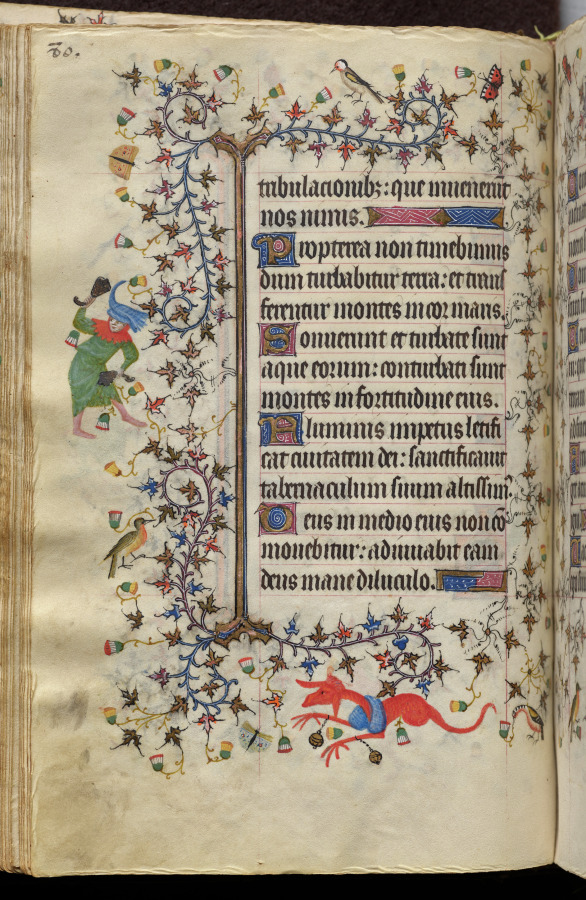 80.
tribulacionib3: que inuenerūt
nos nimis.
Propterea non timebimus
dum turbabitur terra: et trans
ferentur montes in cor maris.
Sonuerunt et turbate sunt
aque eorum: conturbati sunt
montes in fortitudine eius.
Fluminis impetus letifi
cat ciuitatem dei: sanctificauit
tabernaculum suum altissim9.
Deus in medio eius non cō
mouebitur: adiuuabit eam
deus mane diluculo.